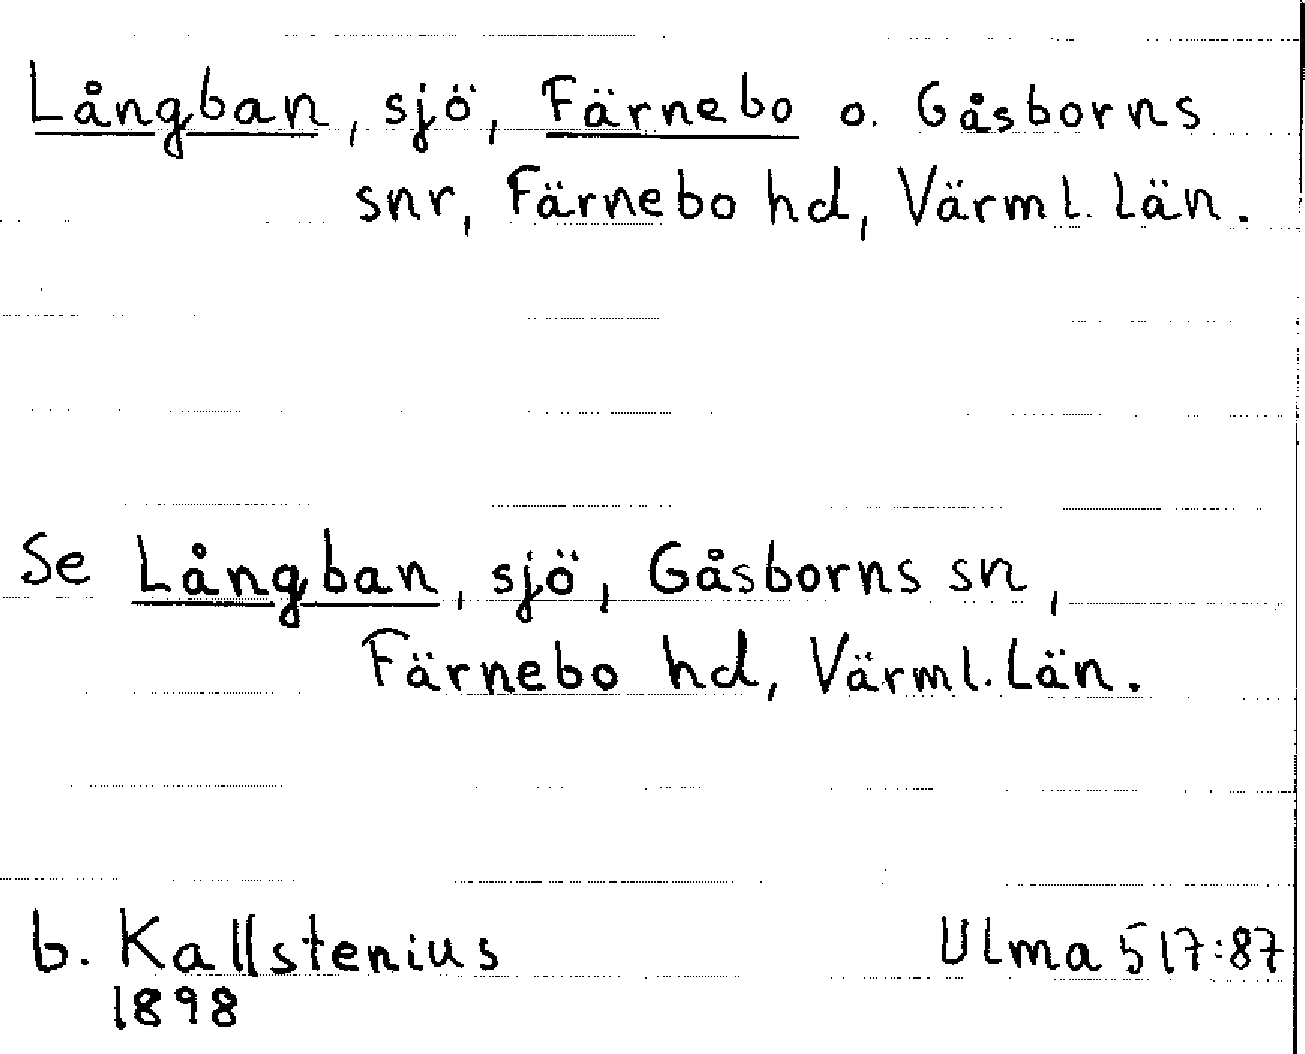 Långban, sjö, Färnebo o. Gåsborns
snr, Färnebo hd, Värml. Län.
Se Långban, sjö, Gåsborns sn,
Färnebo hd, Värml. Län.
b. Kallstenius
1898
Ulma 517:87